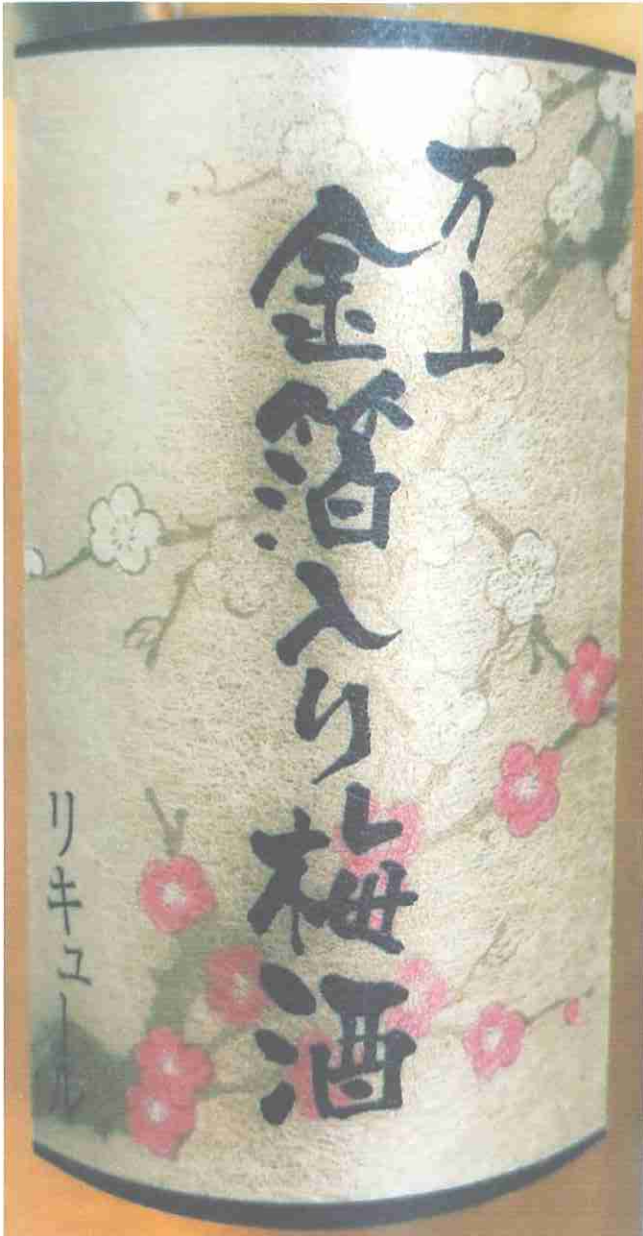 万上
金箔入り梅酒
リキュール